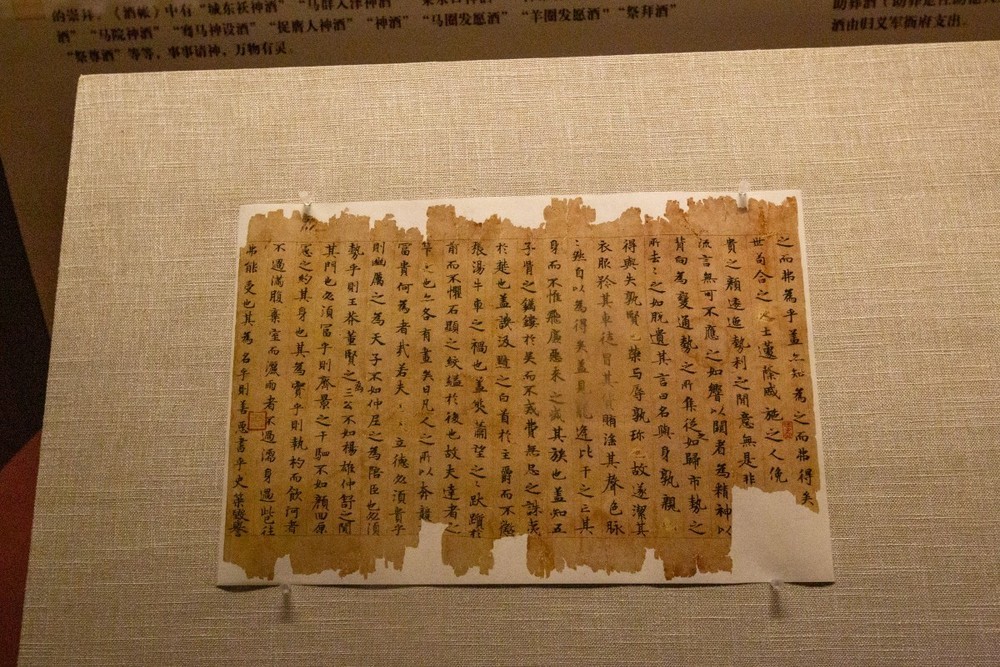 的崇拜。《酒帐》中有“城东祆神酒” “马群入泽神酒”
酒” “马院神酒” “骆马神设酒” “捉鹰人神酒” “神酒” “马圈发愿酒” “羊圈发愿酒” “祭拜”
“祭尊酒”等等，事事请神，万物有灵。
酒由归义军衙府支出。
之而弗為乎蓋亦知為之而弗得矣
世苟合之士蘧蒢戚施之人俛
貴之顏逶迤勢利之間意無是非
流言無可不應之如響以闚看為精神以
背向為變通勢之所集從之如歸市勢之
所去之如脫遺其言曰名與身孰親
得與失孰賢也榮与辱孰珎也故遂潔其
衣服矜其車徒冒其貨賄淫其聲色脉
然自以為得矣蓋見龍逢比干之亡其
身而不惟飛廉惡来之滅其族也蓋知五
子胥之鐲鏤於吳而不戒費無忌之誅夷
於楚也蓋譏汲黯之白首於主爵而不懲
張湯牛車之禍也蓋笑蕭望之跋躓於
前而不懼石顯之絞縊於後也故夫達者之
筭之也亦各有盡矣曰凡人之所以奔競
富貴何為者哉若夫立德必須貴乎
則幽厲之為天子不如仲尼之為陪臣也必須
勢乎則王莽董賢之為三公不如楊雄仲舒之闃
其門也必須富乎則齊景之千駟不如顏回原
憲之約其身也其為實乎則執杓而飲河者
不過滿腹棄室而灑雨者不過濡身過此往
弗能受也其為名乎則善惡書乎史策毀譽